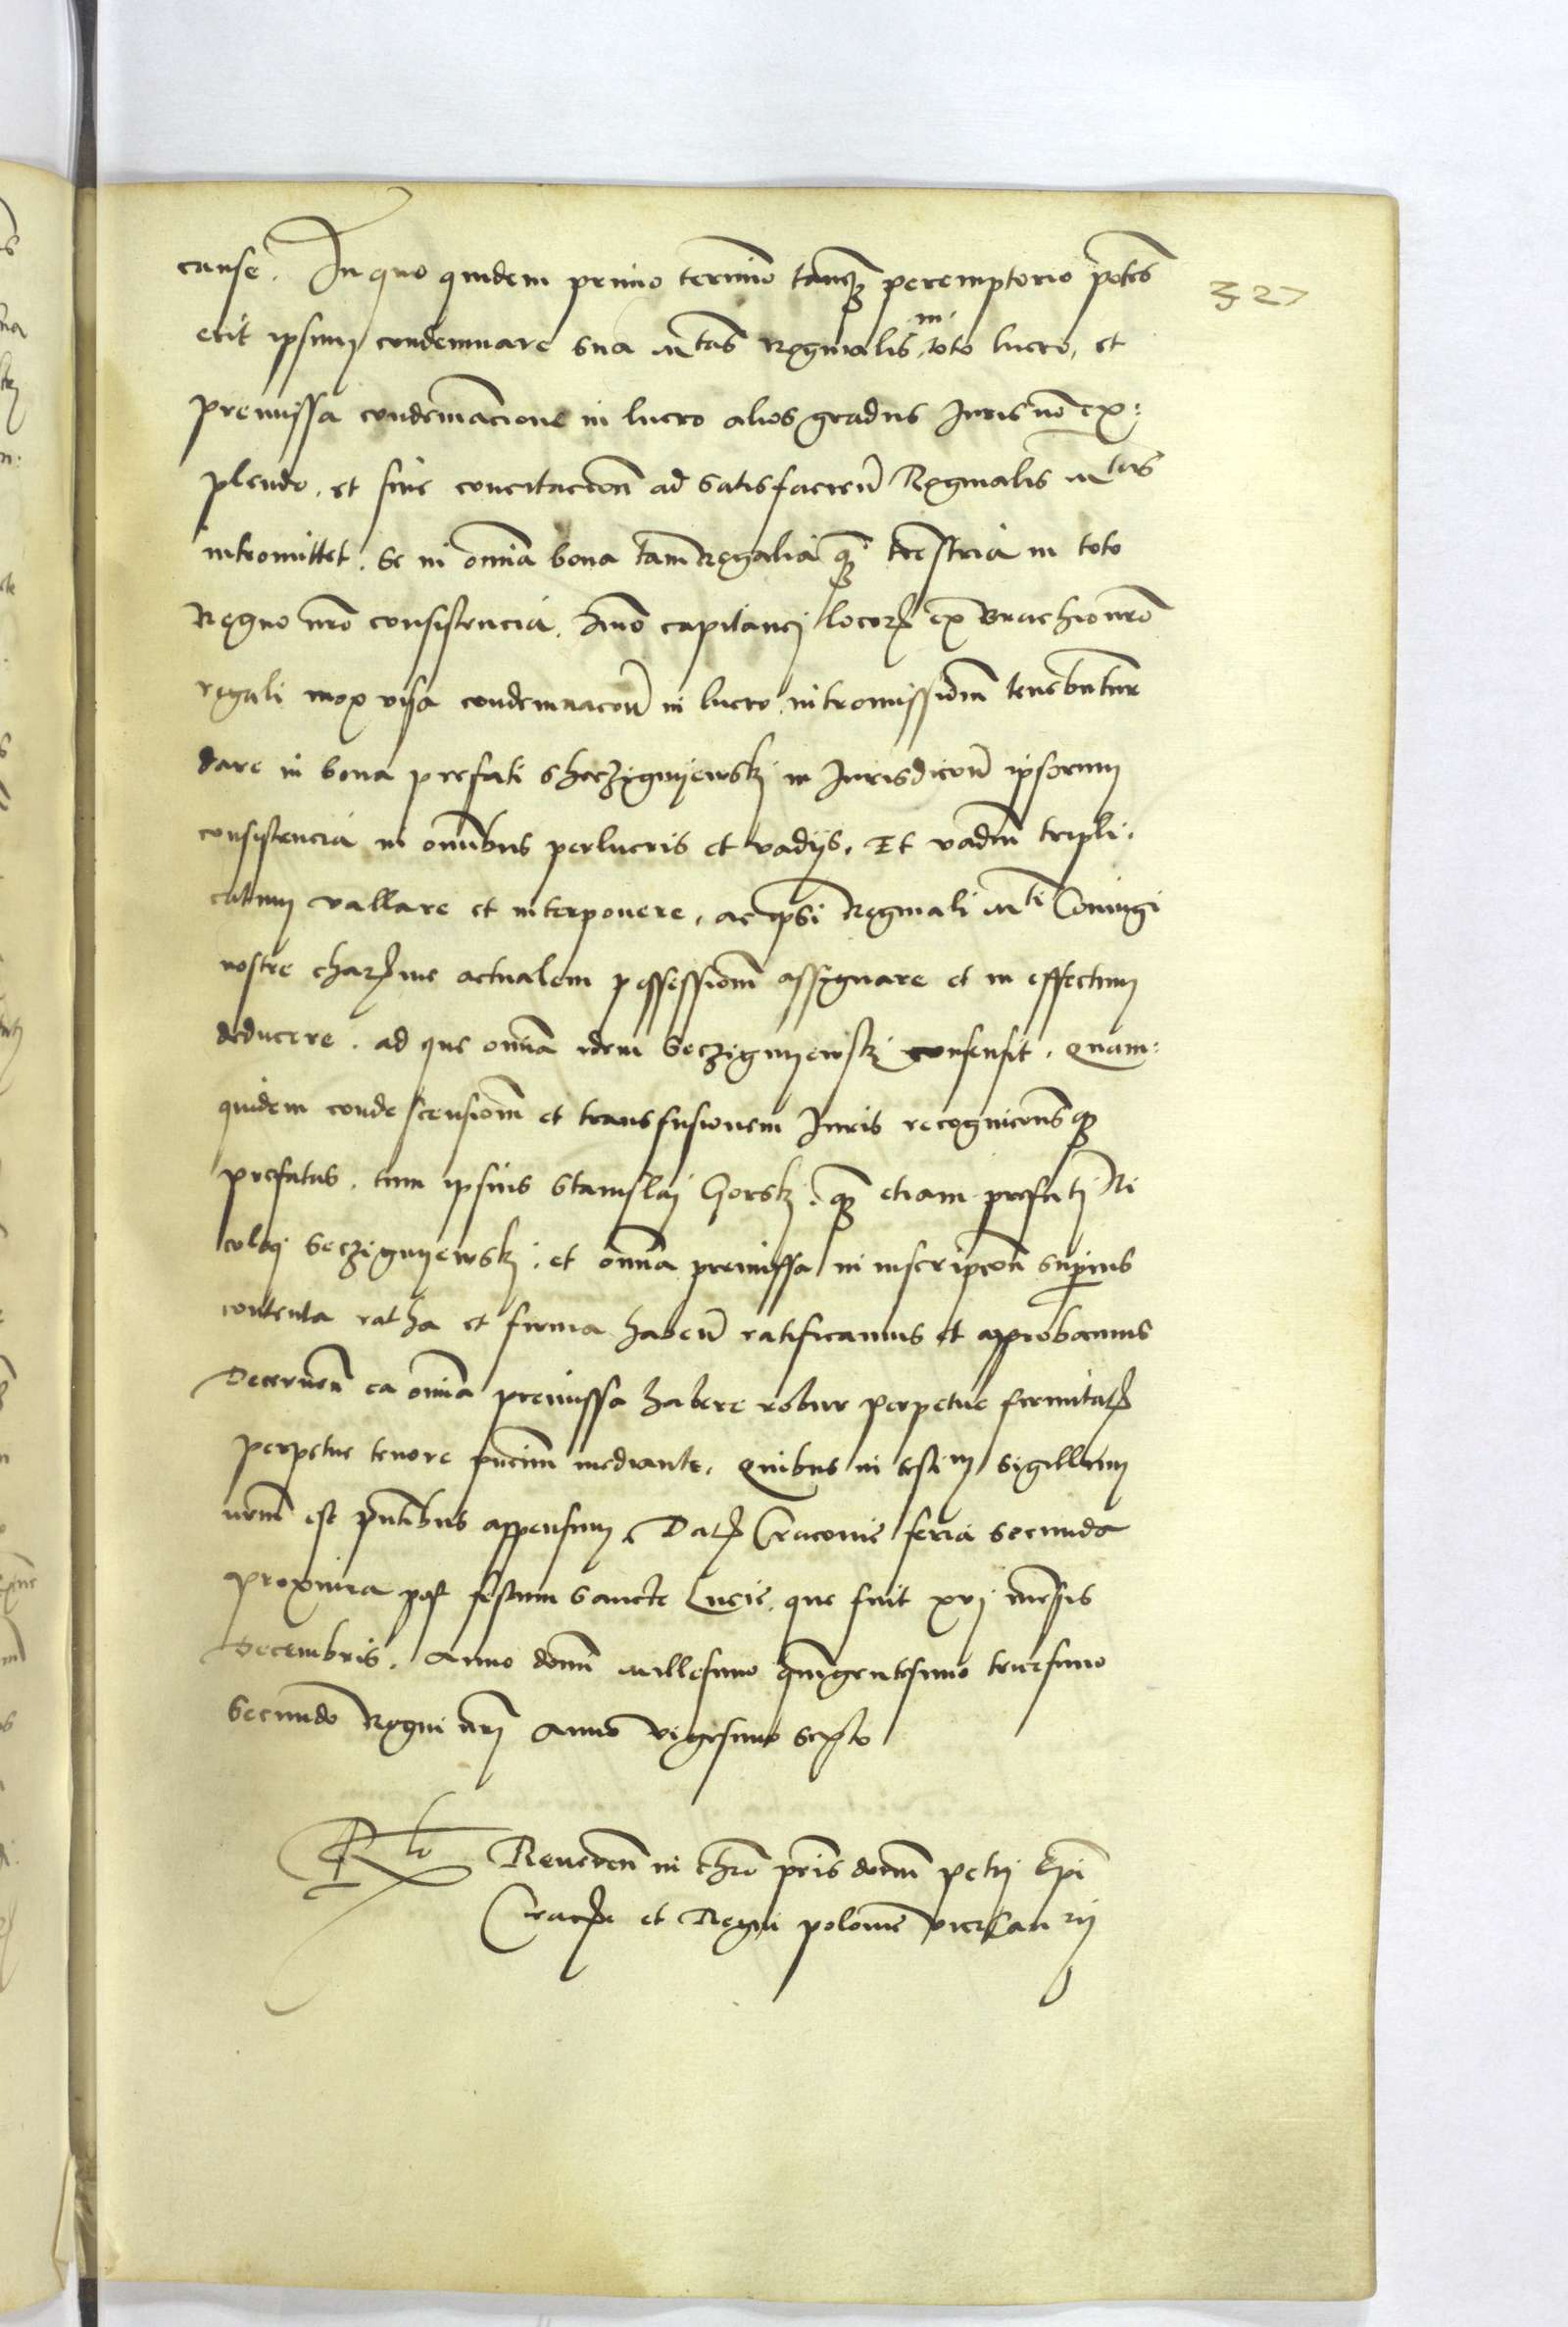 cause. In quo quidem primo termino tanq̃ peremptorio potes
327
erit ipsum condemnare sua Mtas Reginalis in toto lucro, et
premissa condemnacione in lucro alios gradus Juris nõ ex:
plendo, et sine concitacioñ ad satisfacieñ Reginalis Mtis
intromittet. se in omnia bona tam Regalia q̃ trestria in toto
Regno nro consistencia. Imo capitanej locorꝝ ex brachio nro
regali mox visa condemnacoñ in lucro intromissionem tenebuntur
dare in bona prefati Sheczignyewskj in Jurisdicoñ ipsorum
consistencia in omnibus perlucris et vadijs. Et vadiũ tripli,
catum vallare et interponere. ac ipsi Reginali Mti Coniugi
nostre charme actualem possessionem assignare et in effectum
deducere. ad que omnia idem Seczignyewskj consensit. Quam:
quidem condescensionem et transfusionem Juris recogniconesq̃
prefatas, tam ipsius Stanislaj Gorskj q̃ etiam prefatj Ni
colaj Seczignyewskj. et omnia premissa in inscripcoñ superius
contenta ratha et firma habeñ ratificamus et approbamus
Decerneñ ea omnia premissa habere robur perpetue firmitatꝭ
perpetue tenore pñcium mediante. Quibus in testim sigillum
nrm est pñtibus appensum. Datꝭ Cracovie feria secunda
proxima post festum Sancte Lucie. que fuit xvj mensis
Decembris. Anno domini Millesimo quingentesimo tricesimo
secundo Regni nrj Anno vigesimo sexto
Rlo Revereñ in chro pris domini Petrj Epi
Cracꝭ et Regni polonie vicecan rij